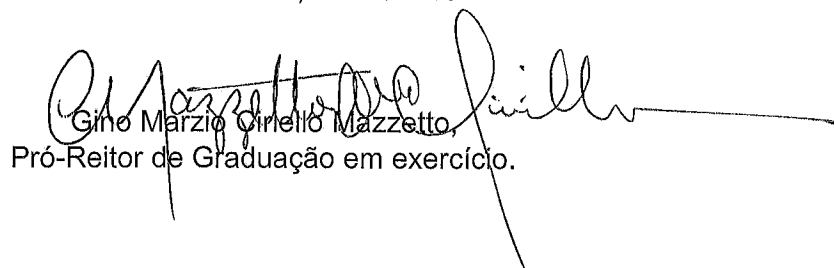 Gino Marzio Ciriello Mazzetto,
Pró-Reitor de Graduação em exercício.